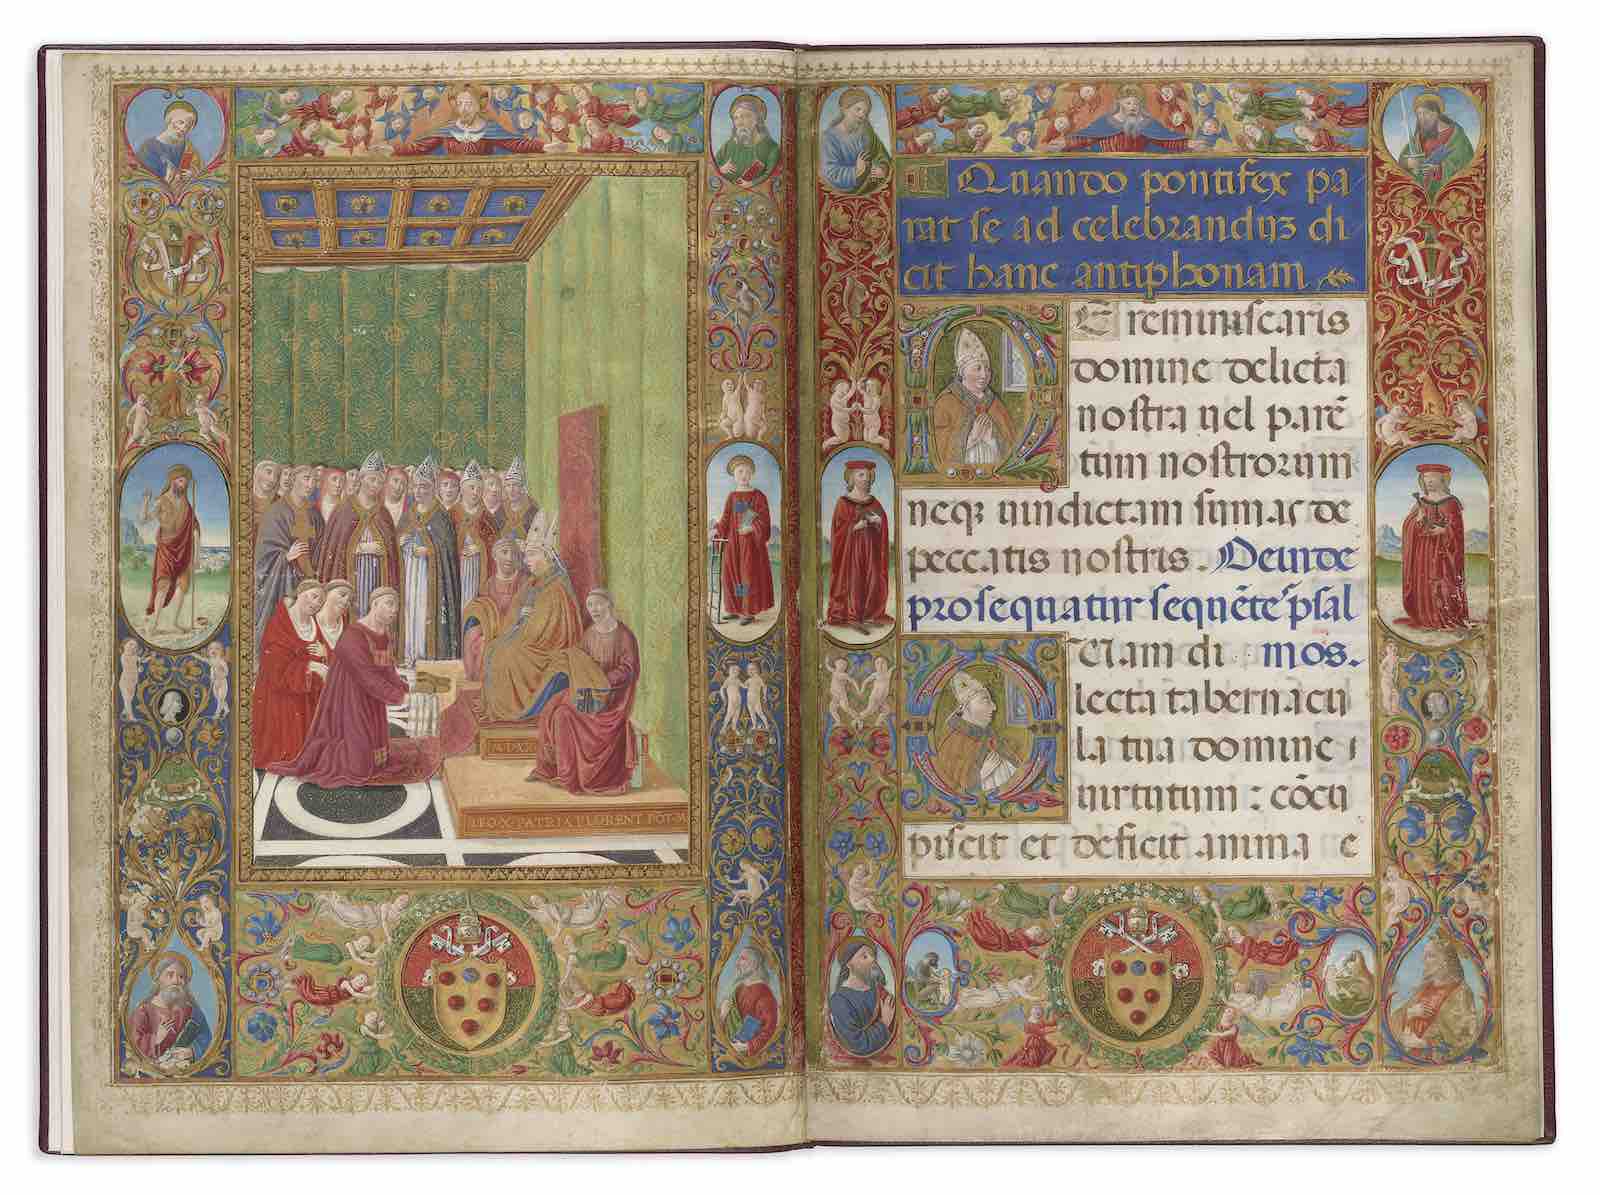 LEO·X·PATRIA·FLORENT·PONT·M
Quando pontifex pa
rat se ad celebranduȝ di
cit hanc antiphonam
E reminiscaris
domine delicta
nostra vel parē
tum nostrorum
neqȝ vindictam sumas de
peccatis nostris. Deinde
prosequatur sequēte psal
mos.
Uam di
lecta tabernacu
la tua domine
virtutum : cōcu
piscit et deficit anima